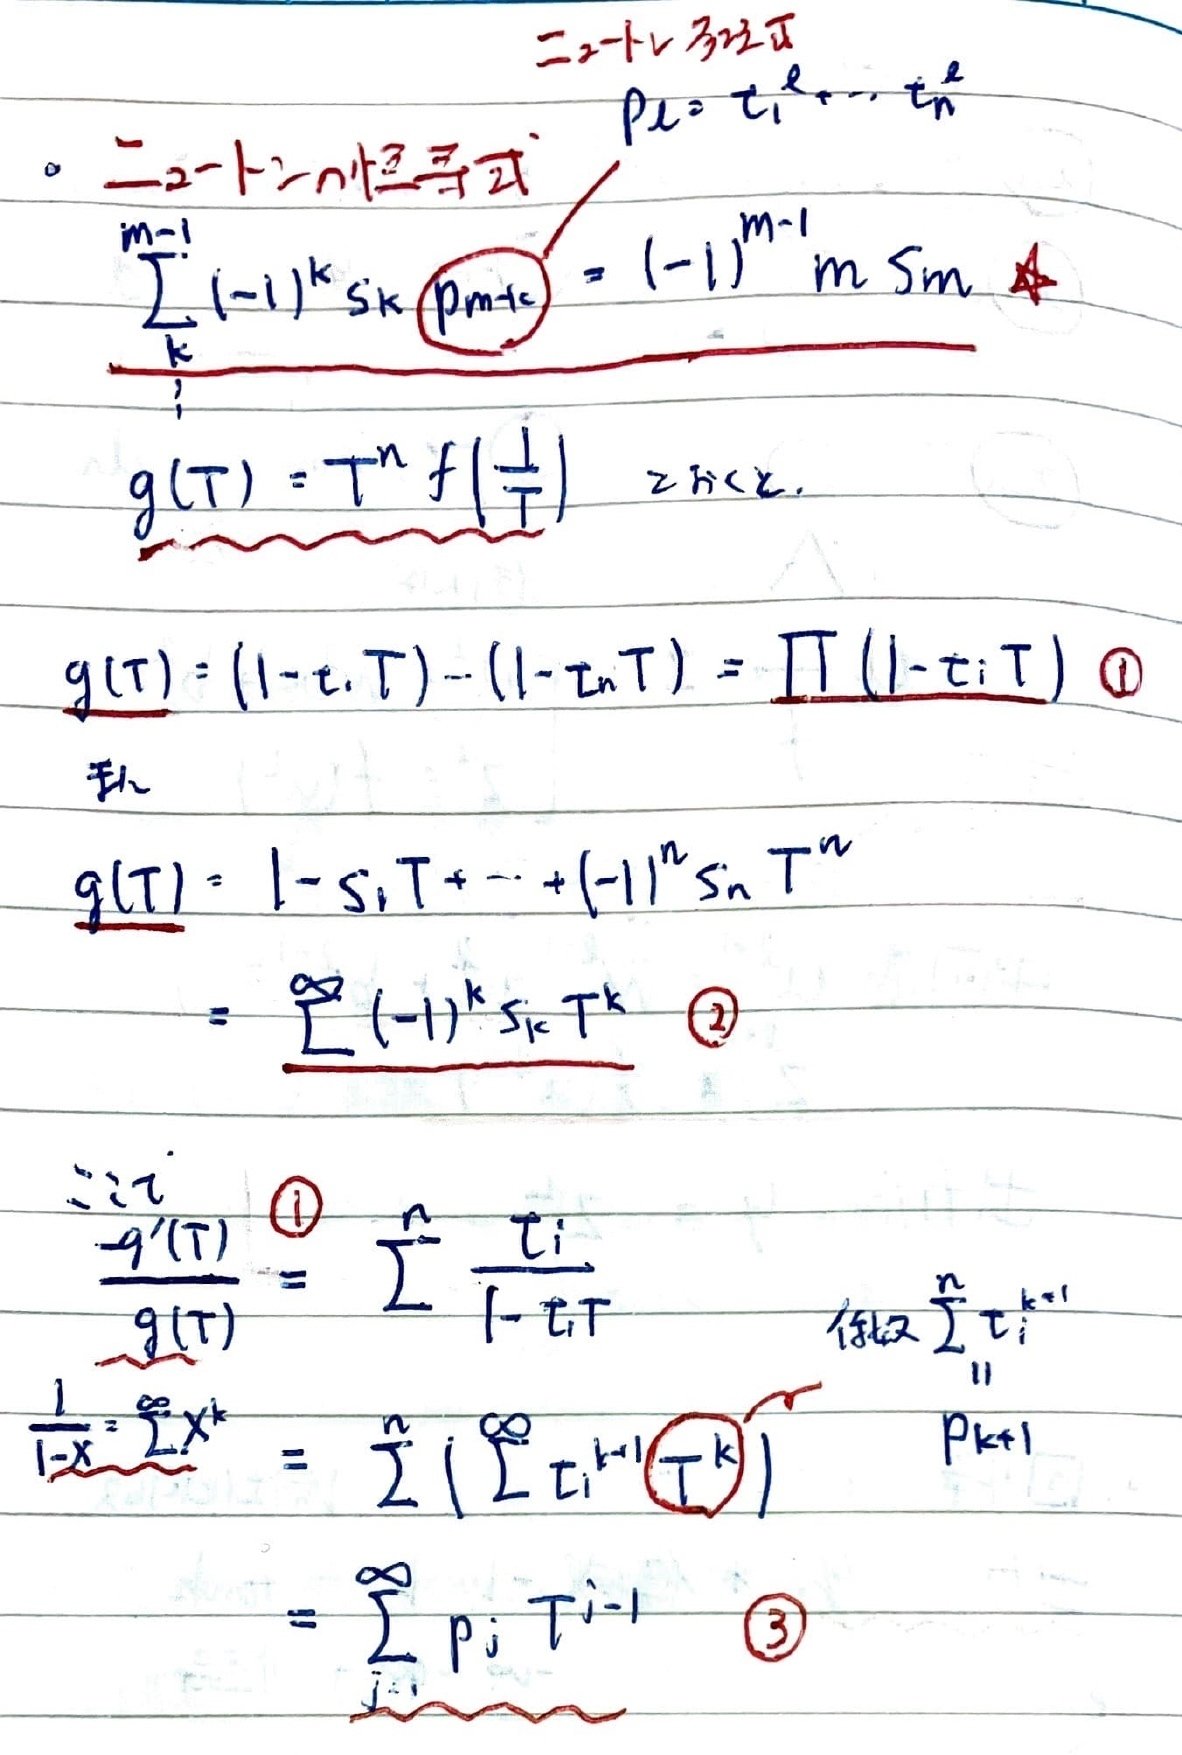 ニュートン多項式
pℓ = t₁^ℓ + ⋯ tₙ^ℓ
・ニュートンの恒等式
m-1
∑ (-1)^k s_k p_{m-k} = (-1)^{m-1} m s_m ☆
k
g(T) = T^n f(1/T) とおくと.
g(T) = (1-t₁T)⋯(1-tₙT) = ∏(1-t_iT) ①
また
g(T) = 1-s₁T+⋯+(-1)^n sₙT^n
= ∑^∞ (-1)^k s_k T^k ②
ここで
-g'(T)/g(T) = ① ∑^n t_i/(1-t_iT)
係数 ∑^n t_i^{k+1}
॥
p_{k+1}
1/(1-x) = ∑^∞ x^k
= ∑^n (∑^∞ t_i^{k+1} T^k)
= ∑_{j=1}^∞ p_j T^{j-1} ③